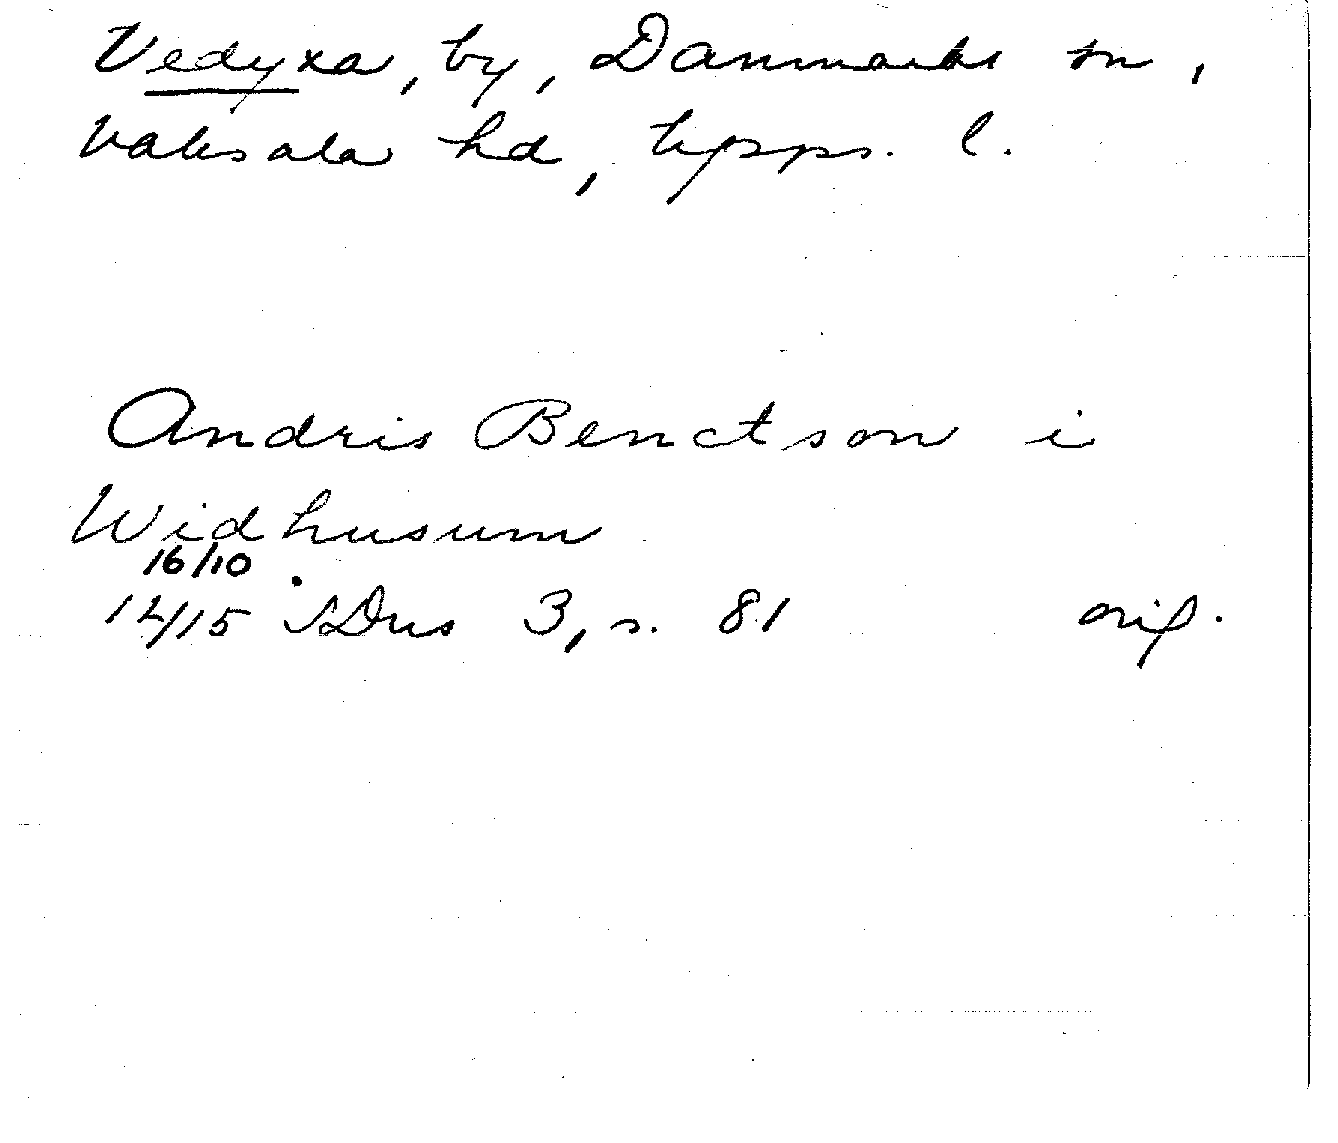 Vedyxa, by, Danmarks sn,
Vaksala hd, Upps. l.
Andris Benctson i
Widhusum
16/10
1415 SDns 3, s. 81 orig.